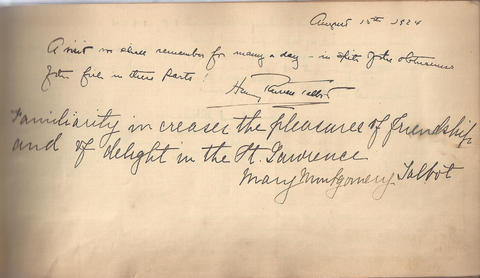 August 15th 1924
A visit we shall remember for many a day - in spite of the obtuseness
of the fish in these parts!
Henry Talbot
Familiarity increases the pleasures of friendship
and of delight in the St. Lawrence
Mary Montgomery Talbot